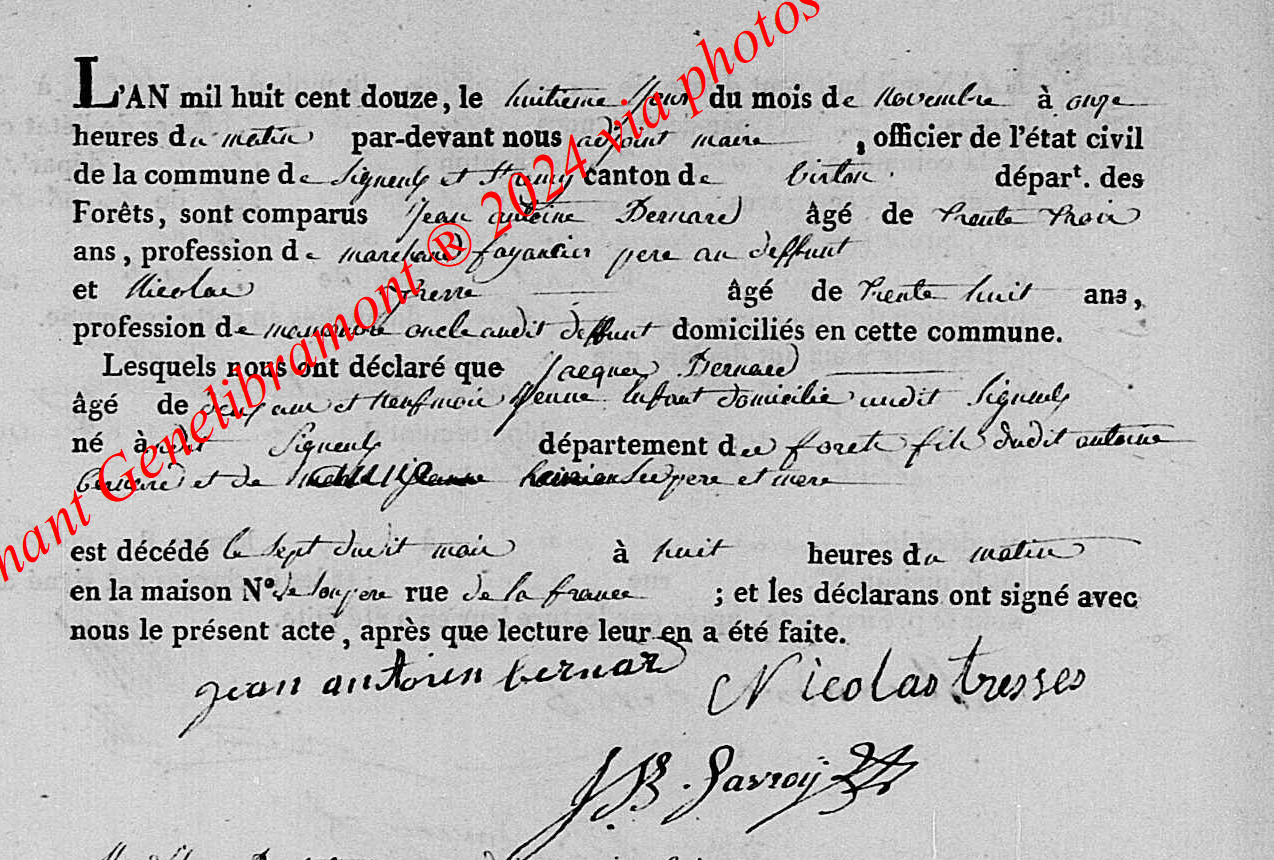 L'AN mil huit cent douze, le huitieme Jour du mois de Novembre à onze
heures du matin par-devant nous adjoint maire, officier de l'état civil
de la commune de Signeulx et canton de Virton départ. des
Forêts, sont comparus Jean antoine Bernard âgé de trente trois
ans, profession de marchand fayancier pere au deffunt
et Nicolas âgé de trente huit ans,
profession de manouvre oncle audit deffunt domiciliés en cette commune.
Lesquels nous ont déclaré que Jacques Bernard
âgé de deux ans et neuf mois Jeune Enfant domicilié audit Signeulx
né à dit Signeulx département des forets fils dudit antoine
bernard et de pere et mere
est décédé le sept dudit mois à huit heures du matin
en la maison N° de son pere rue de la france ; et les déclarans ont signé avec
nous le présent acte, après que lecture leur en a été faite.
jean antoien bernard Nicolas tresses
J B. Javroy
nant Genelibramont ® 2024 via photos